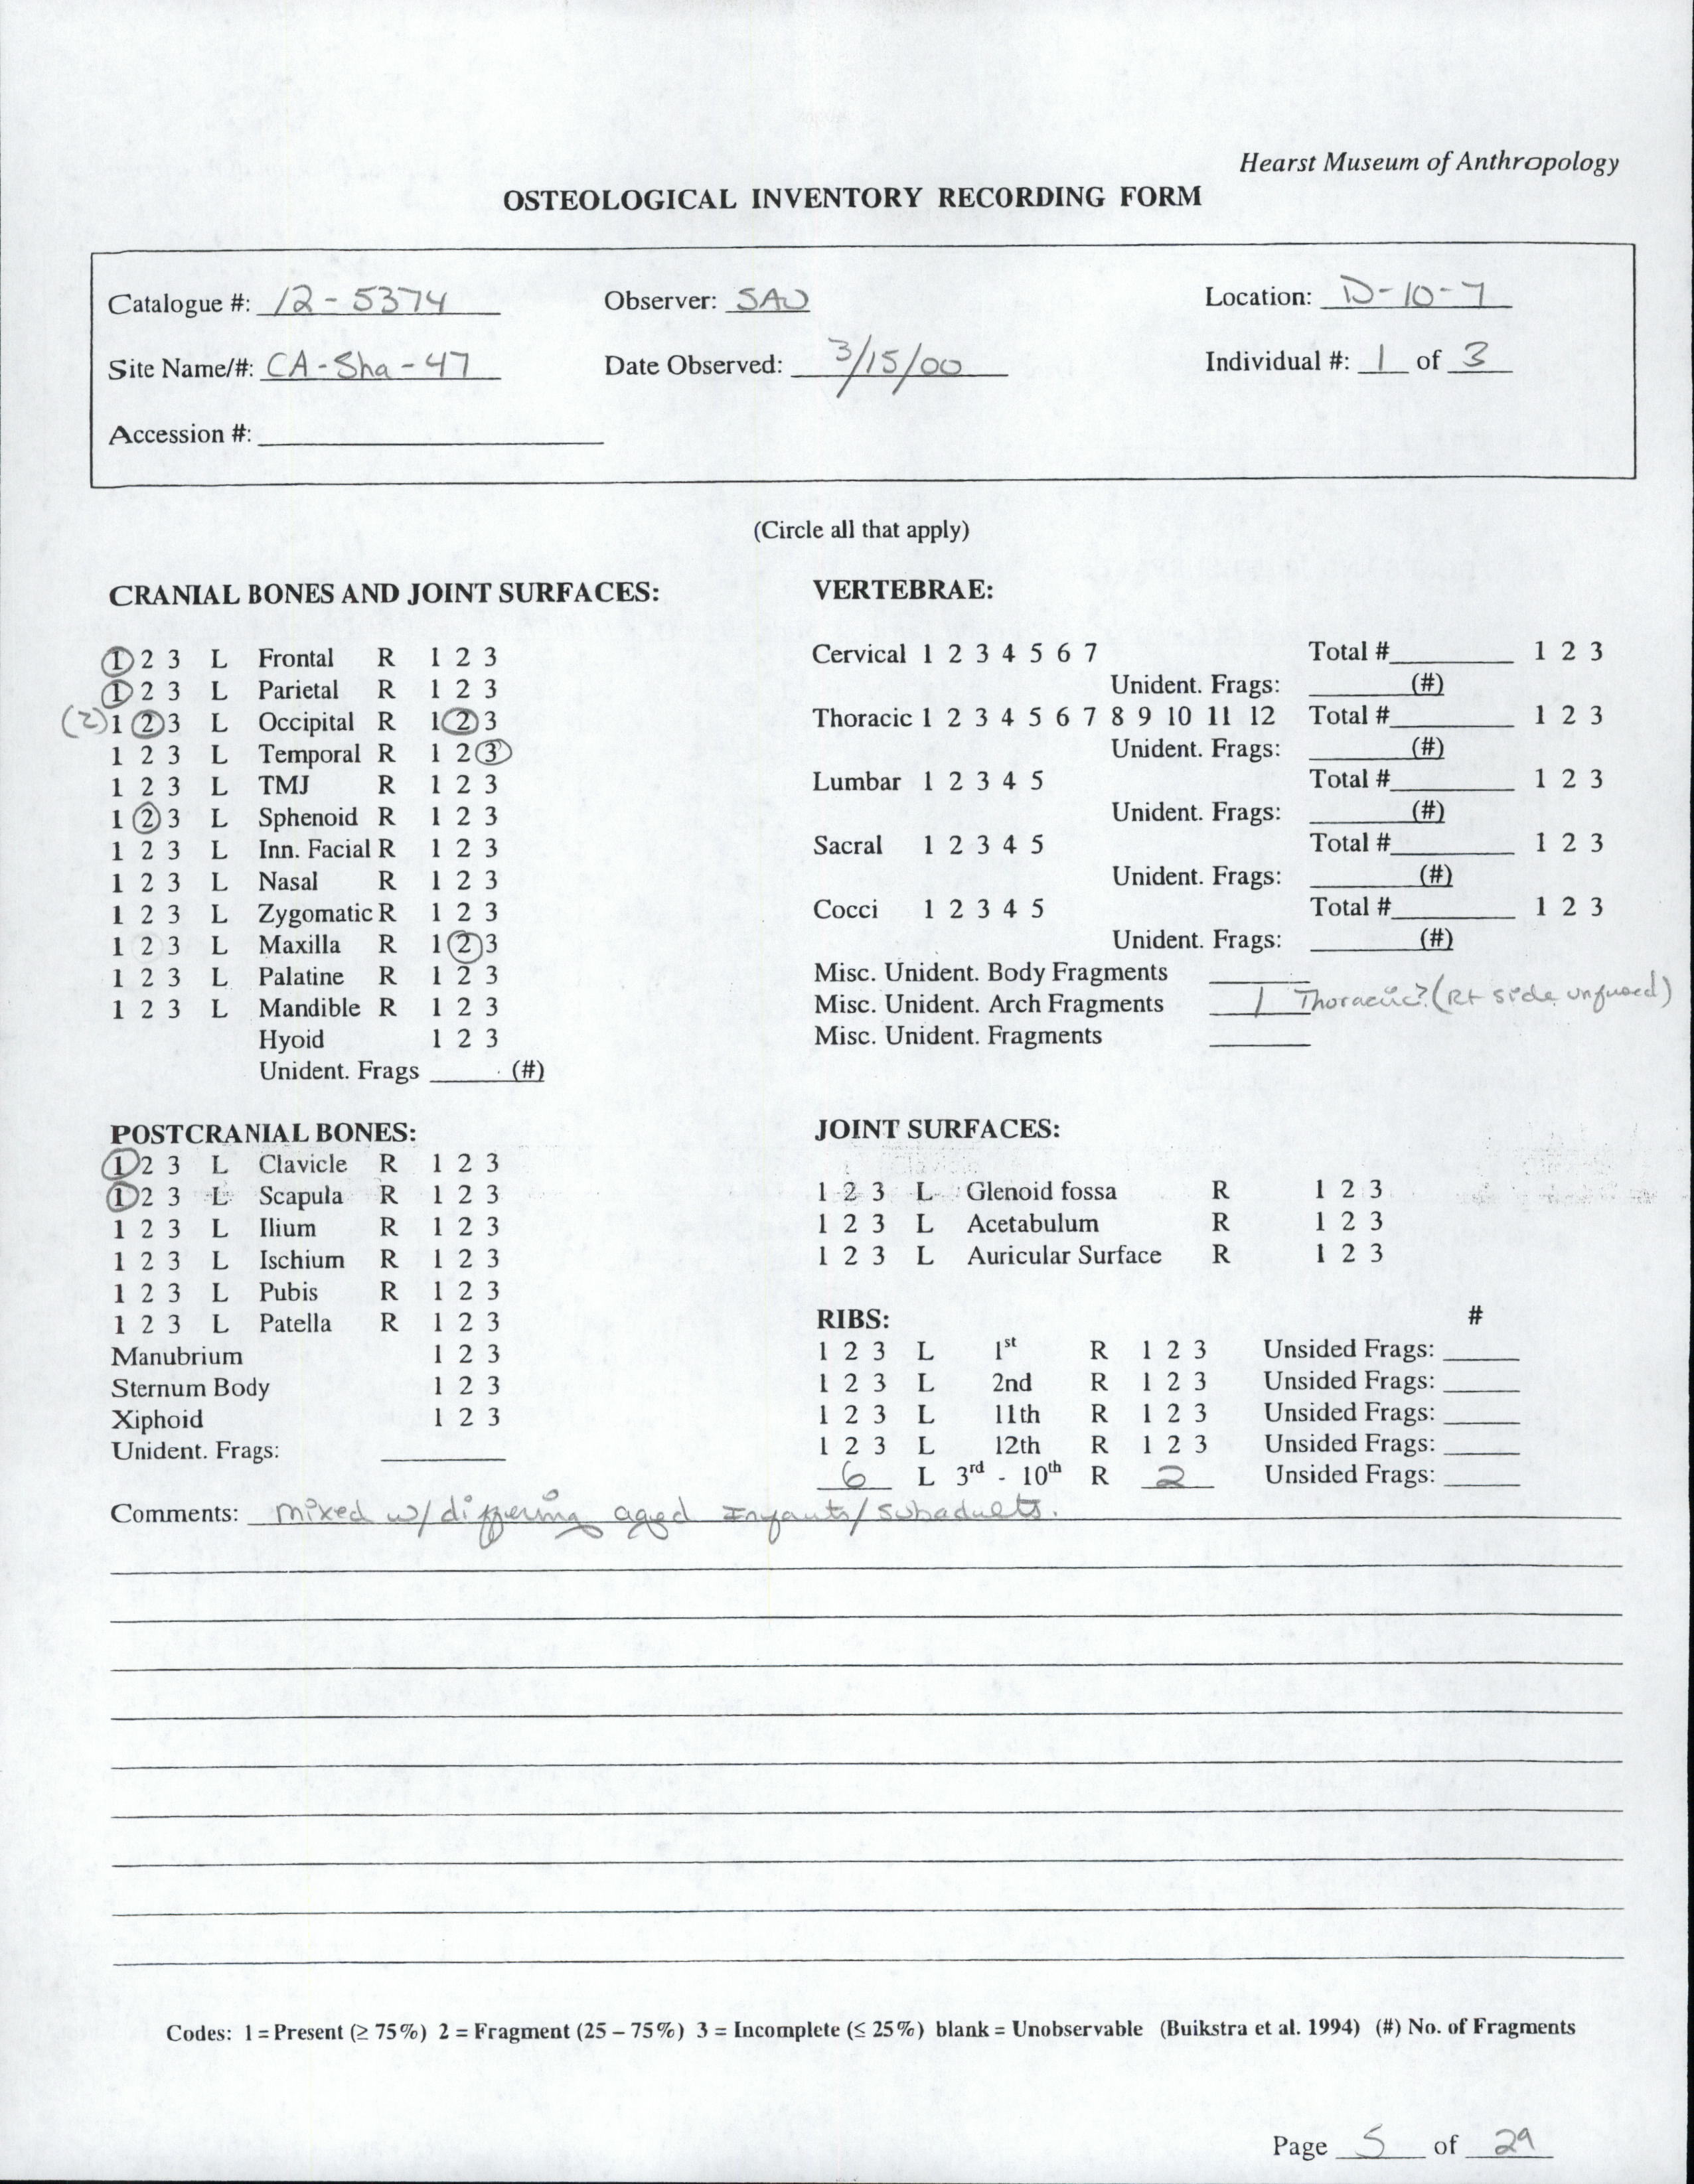 Hearst Museum of Anthropology
OSTEOLOGICAL INVENTORY RECORDING FORM
Catalogue #: 12-5374 Observer: SAW Location: D-10-7
Site Name/#: CA-Sha-47 Date Observed: 3/15/00 Individual #: 1 of 3
Accession #:
(Circle all that apply)
CRANIAL BONES AND JOINT SURFACES:
1 2 3 L Frontal R 1 2 3
1 2 3 L Parietal R 1 2 3
(2) 1 2 3 L Occipital R 1 2 3
1 2 3 L Temporal R 1 2 3
1 2 3 L TMJ R 1 2 3
1 2 3 L Sphenoid R 1 2 3
1 2 3 L Inn. Facial R 1 2 3
1 2 3 L Nasal R 1 2 3
1 2 3 L Zygomatic R 1 2 3
1 2 3 L Maxilla R 1 2 3
1 2 3 L Palatine R 1 2 3
1 2 3 L Mandible R 1 2 3
Hyoid 1 2 3
Unident. Frags (#)
VERTEBRAE:
Cervical 1 2 3 4 5 6 7 Total # 1 2 3
Unident. Frags: (#)
Thoracic 1 2 3 4 5 6 7 8 9 10 11 12 Total # 1 2 3
Unident. Frags: (#)
Lumbar 1 2 3 4 5 Total # 1 2 3
Unident. Frags: (#)
Sacral 1 2 3 4 5 Total # 1 2 3
Unident. Frags: (#)
Cocci 1 2 3 4 5 Total # 1 2 3
Unident. Frags: (#)
Misc. Unident. Body Fragments
Misc. Unident. Arch Fragments 1 Thoracic? (Rt side unfused)
Misc. Unident. Fragments
POSTCRANIAL BONES:
1 2 3 L Clavicle R 1 2 3
1 2 3 L Scapula R 1 2 3
1 2 3 L Ilium R 1 2 3
1 2 3 L Ischium R 1 2 3
1 2 3 L Pubis R 1 2 3
1 2 3 L Patella R 1 2 3
Manubrium 1 2 3
Sternum Body 1 2 3
Xiphoid 1 2 3
Unident. Frags:
JOINT SURFACES:
1 2 3 L Glenoid fossa R 1 2 3
1 2 3 L Acetabulum R 1 2 3
1 2 3 L Auricular Surface R 1 2 3
RIBS: #
1 2 3 L 1st R 1 2 3 Unsided Frags:
1 2 3 L 2nd R 1 2 3 Unsided Frags:
1 2 3 L 11th R 1 2 3 Unsided Frags:
1 2 3 L 12th R 1 2 3 Unsided Frags:
6 L 3rd - 10th R 2 Unsided Frags:
Comments: mixed w/ differing aged Infants/subadults.
Codes: 1 = Present (≥ 75%) 2 = Fragment (25 – 75%) 3 = Incomplete (≤ 25%) blank = Unobservable (Buikstra et al. 1994) (#) No. of Fragments
Page 5 of 29